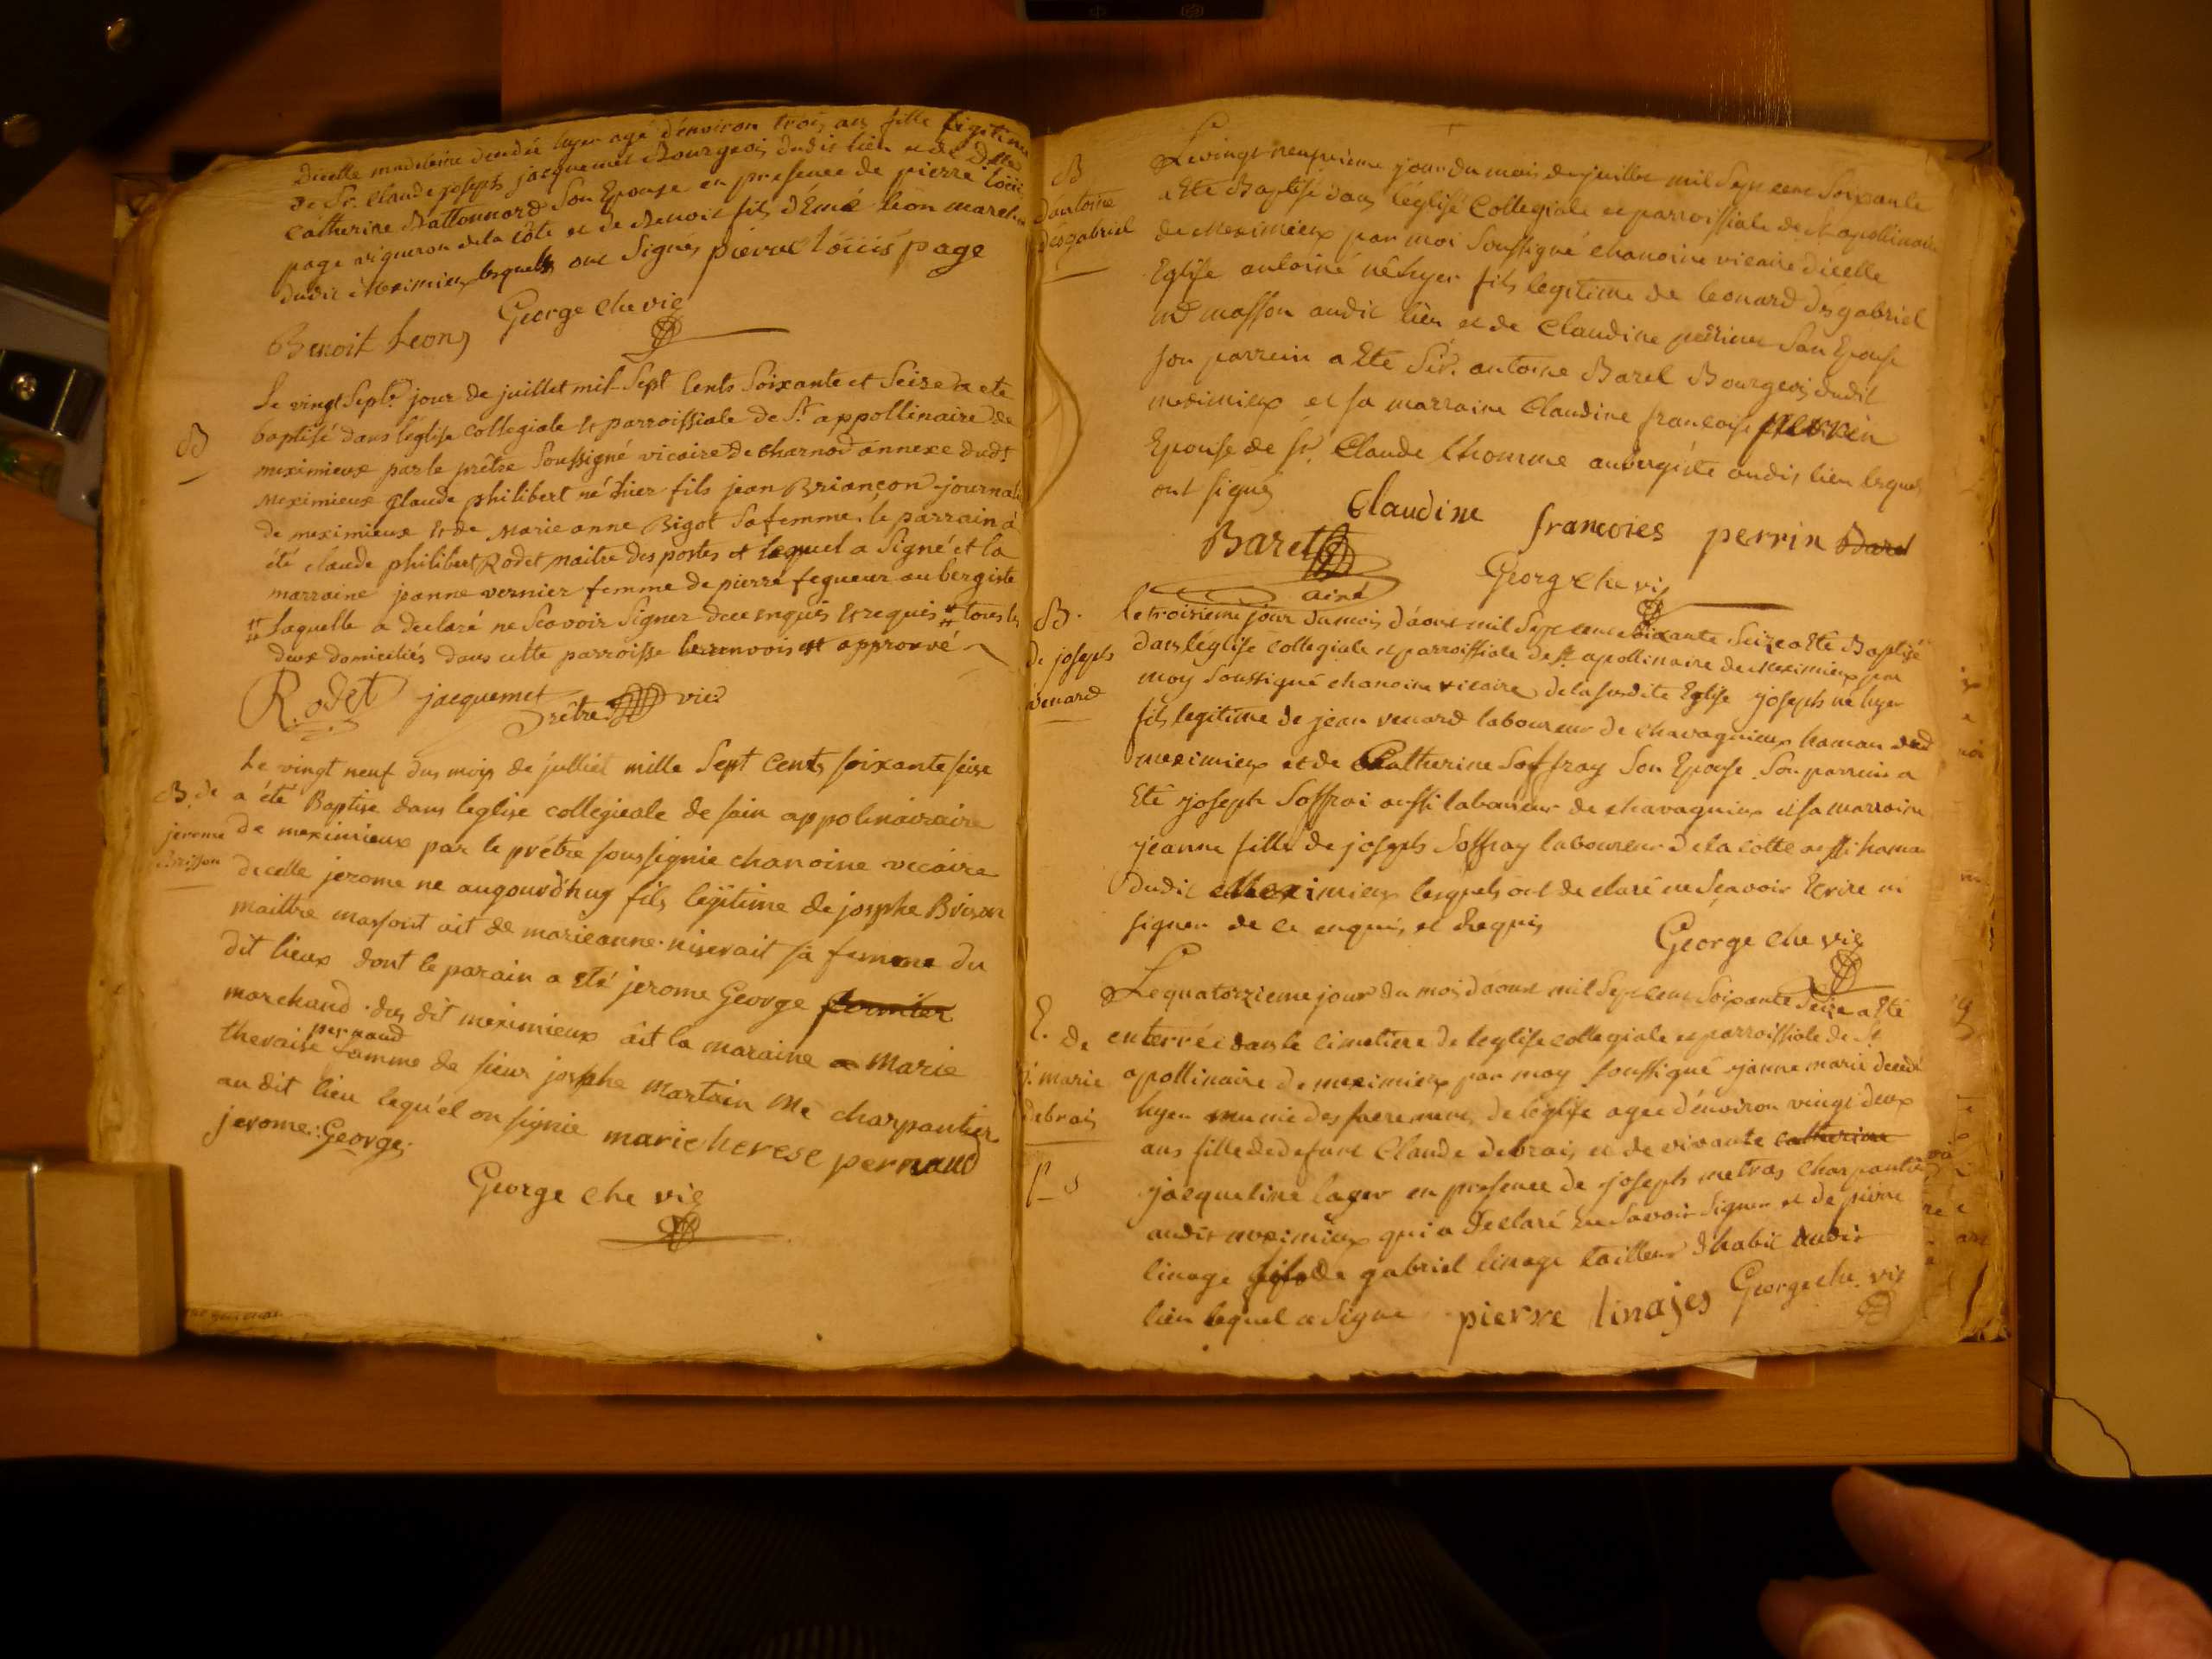 dicelle madeleine decedée hyer agé d'environ trois ans fille legitime
de Sr. Claude joseph jacquemet Bourgeois dudit lieu et de Dlle
Catherine Battonnard Son Epouse en presence de pierre loüis
page vigneron de la Côte et de Benoit fils d'Emé leon march
dudit Meximieux lesquels ont Signés pierre loüis page
Benoit Leong George che vic
B
Le vingt Sept.e jour de juillet mil Sept Cents Soixante et Seise a eté
baptisé dans l'église collegiale et parroissiale de St. appollinaire de
meximieux par le prêtre Soussigné vicaire de Charnod annexe dudt
meximieux Claude philibert né hier fils jean Briançon journal
de meximieux et de Marie anne Bigot Sa femme. le parrain à
été claude philibert Rodet maitre des postes et lequel a Signé et la
marraine jeanne vernier femme de pierre fegueux aubergiste
laquelle a declaré ne Scavoir Signer de ce enquis et requis tous les
deux domiciliés dans cette parroisse le renvois et approuvé
Rodet jacquemet prêtre vic:
B. de
jerome
Brisson
Le vingt neuf dus mois de julliet mille Sept Cents soixante seise
a été Baptise dans leglise collegieale de sain appolinairaire
de meximieux par le prétre soussignie chanoine vecaire
dicelle jerome ne augourd'huy fils légitime de josphe Brison
maittre massont ait de marieanne niserait sa femme du
dit lieux dont le parain a eté jerome George fournier
marchand dus dit meximieux ait la maraine a Marie
theraise pernaud famme de sieur josphe Martain Me charpantier
au dit lieu lequ'el on signie marie herese pernaud
jerome: George:
George che vic
B
d'antoine
desgabriel
Le vingt neufvieme jour du mois de juillet mil Sept cent Soixante
a Eté Baptisé dans l'église Collegiale et parroissiale de St apollinaire
de Meximieux par moi Soussigné chanoine vicaire dicelle
Eglise antoine né hyer fils legitime de leonard desgabriel
md masson audit lieu et de Claudine perrier Son Epouse
son parrein a Eté Sr. antoine Barel Bourgeois dudit
meximieux et sa marraine Claudine françoise perrin
Epouse de Sr. Claude Lhomme aubergiste audit lieu lesquels
ont signés
Claudine francoies perrin Barel
Baret ainé George che vic
B.
de joseph
venard
le troisieme jour du mois d'aout mil Sept cent Soixante Seize a Eté Baptisé
dans l'église collegiale et parroissiale de St apollinaire de Meximieux par
moy Soussigné chanoine vicaire de la susdite Eglise joseph né hyer
fils legitime de jean venard laboureur de chavagnieux hamau dud
meximieux et de Catherine Soffray Son Epouse. Son parrein a
Eté joseph Soffrai aussi laboureur de chavagnieux et sa marraine
jeanne fille de joseph Soffray laboureur de la cotte aussi hamau
dudit Meximieux lesquels ont declaré ne Scavoir Ecrire ni
signer de ce enquis et Requis
George che vic
E. de
j. marie
debrais
Le quatorzieme jour du mois daout mil Sept cent Soixante Seize a Eté
enterrée dans le cimetiere de leglise collegiale et parroissiale de St
apollinaire de meximieux par moy soussigné jeanne marie decedé
hyer munie des sacremens de l'église agée d'environ vingt deux
ans fille de defunt Claude debrais et de vivante catherine
jacqueline lager en presence de joseph metras Charpantier
audit meximieux qui a declaré ne Savoir Signer et de pierre
linage fils de gabriel linage tailleur d'habit audit
lieu lequel a Signe pierre linajes George che. vic